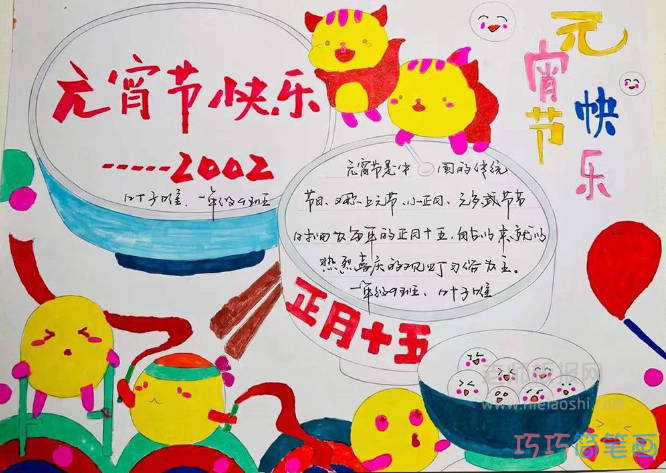 元宵节快乐
-----2002
一年级9班
元宵节快乐
元宵节是中国的传统
节日、又称上元节、小正月、元夕或节节
时间为每年的正月十五、自古以来就以
热烈喜庆的观灯习俗为主。
一年级9班、
正月十五
www.hielaoshi.com
巧巧简笔画